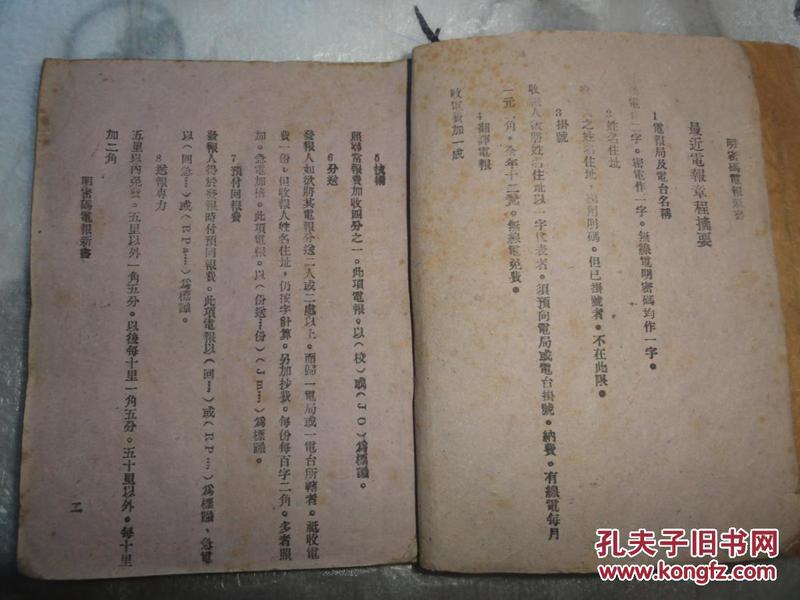 明密碼電報新書
最近電報章程摘要
1 電報局及電台名稱
電作一字。密電作一字。無線電明密碼均作一字。
2 姓名住址
之姓名住址，採用明碼。但已掛號者。不在此限。
3 掛號
收報人欲將姓名住址以一字代表者。須預向電局或電台掛號。納費。有線電每月
一元二角。全年十二元。無線電免費。
4 翻譯電報
收譯費加一成
5 校對
照尋常報費加收四分之一。此項電報。以（校）或（JO）爲標識。
6 分送
發報人如欲將其電報分送二人或二處以上。而歸一電局或一電台所轄者。祗收電
費一份。但收報人姓名住址，仍按字計算。另加抄費。每份每百字二角。多者照
加。急電加倍。此項電報。以（份送…份）（Jm……）爲標識。
7 預付回報費
發報人得於發報時付預同報費。此項電報以（回……）或（R.P……）爲標識、急電
以（回急……）或（R.Pa……）爲標識。
8 送報專力
五里以內免費。五里以外一角五分。以後每十里一角五分。五十里以外。每十里
加二角
明密碼電報新書
二
孔夫子旧书网
www.kongfz.com